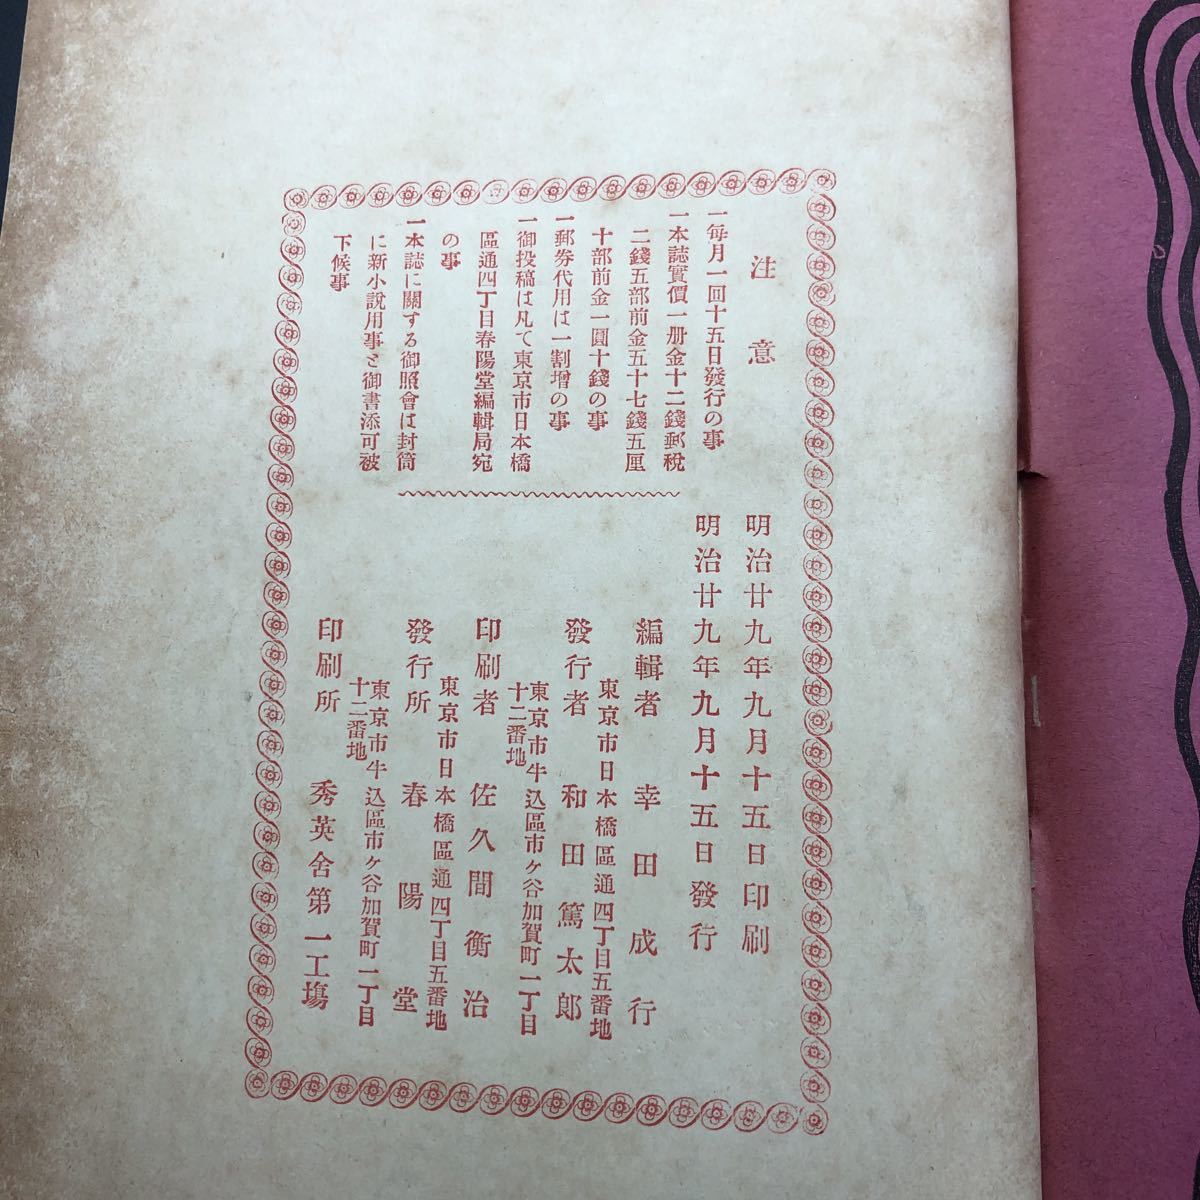 注意
一每月一回十五日發行の事
一本誌實價一册金十二錢郵稅
二錢五部前金五十七錢五厘
十部前金一圓十錢の事
一郵券代用は一割增の事
一御投稿は凡て東京市日本橋
區通四丁目春陽堂編輯局宛
の事
一本誌に關する御照會は封筒
に新小說用事と御書添可被
下候事
明治廿九年九月十五日印刷
明治廿九年九月十五日發行
編輯者 幸田成行
東京市日本橋區通四丁目五番地
發行者 和田篤太郎
東京市牛込區市ヶ谷加賀町一丁目
十二番地
印刷者 佐久間衡治
東京市日本橋區通四丁目五番地
發行所 春陽堂
東京市牛込區市ヶ谷加賀町一丁目
十二番地
印刷所 秀英舍第一工塲